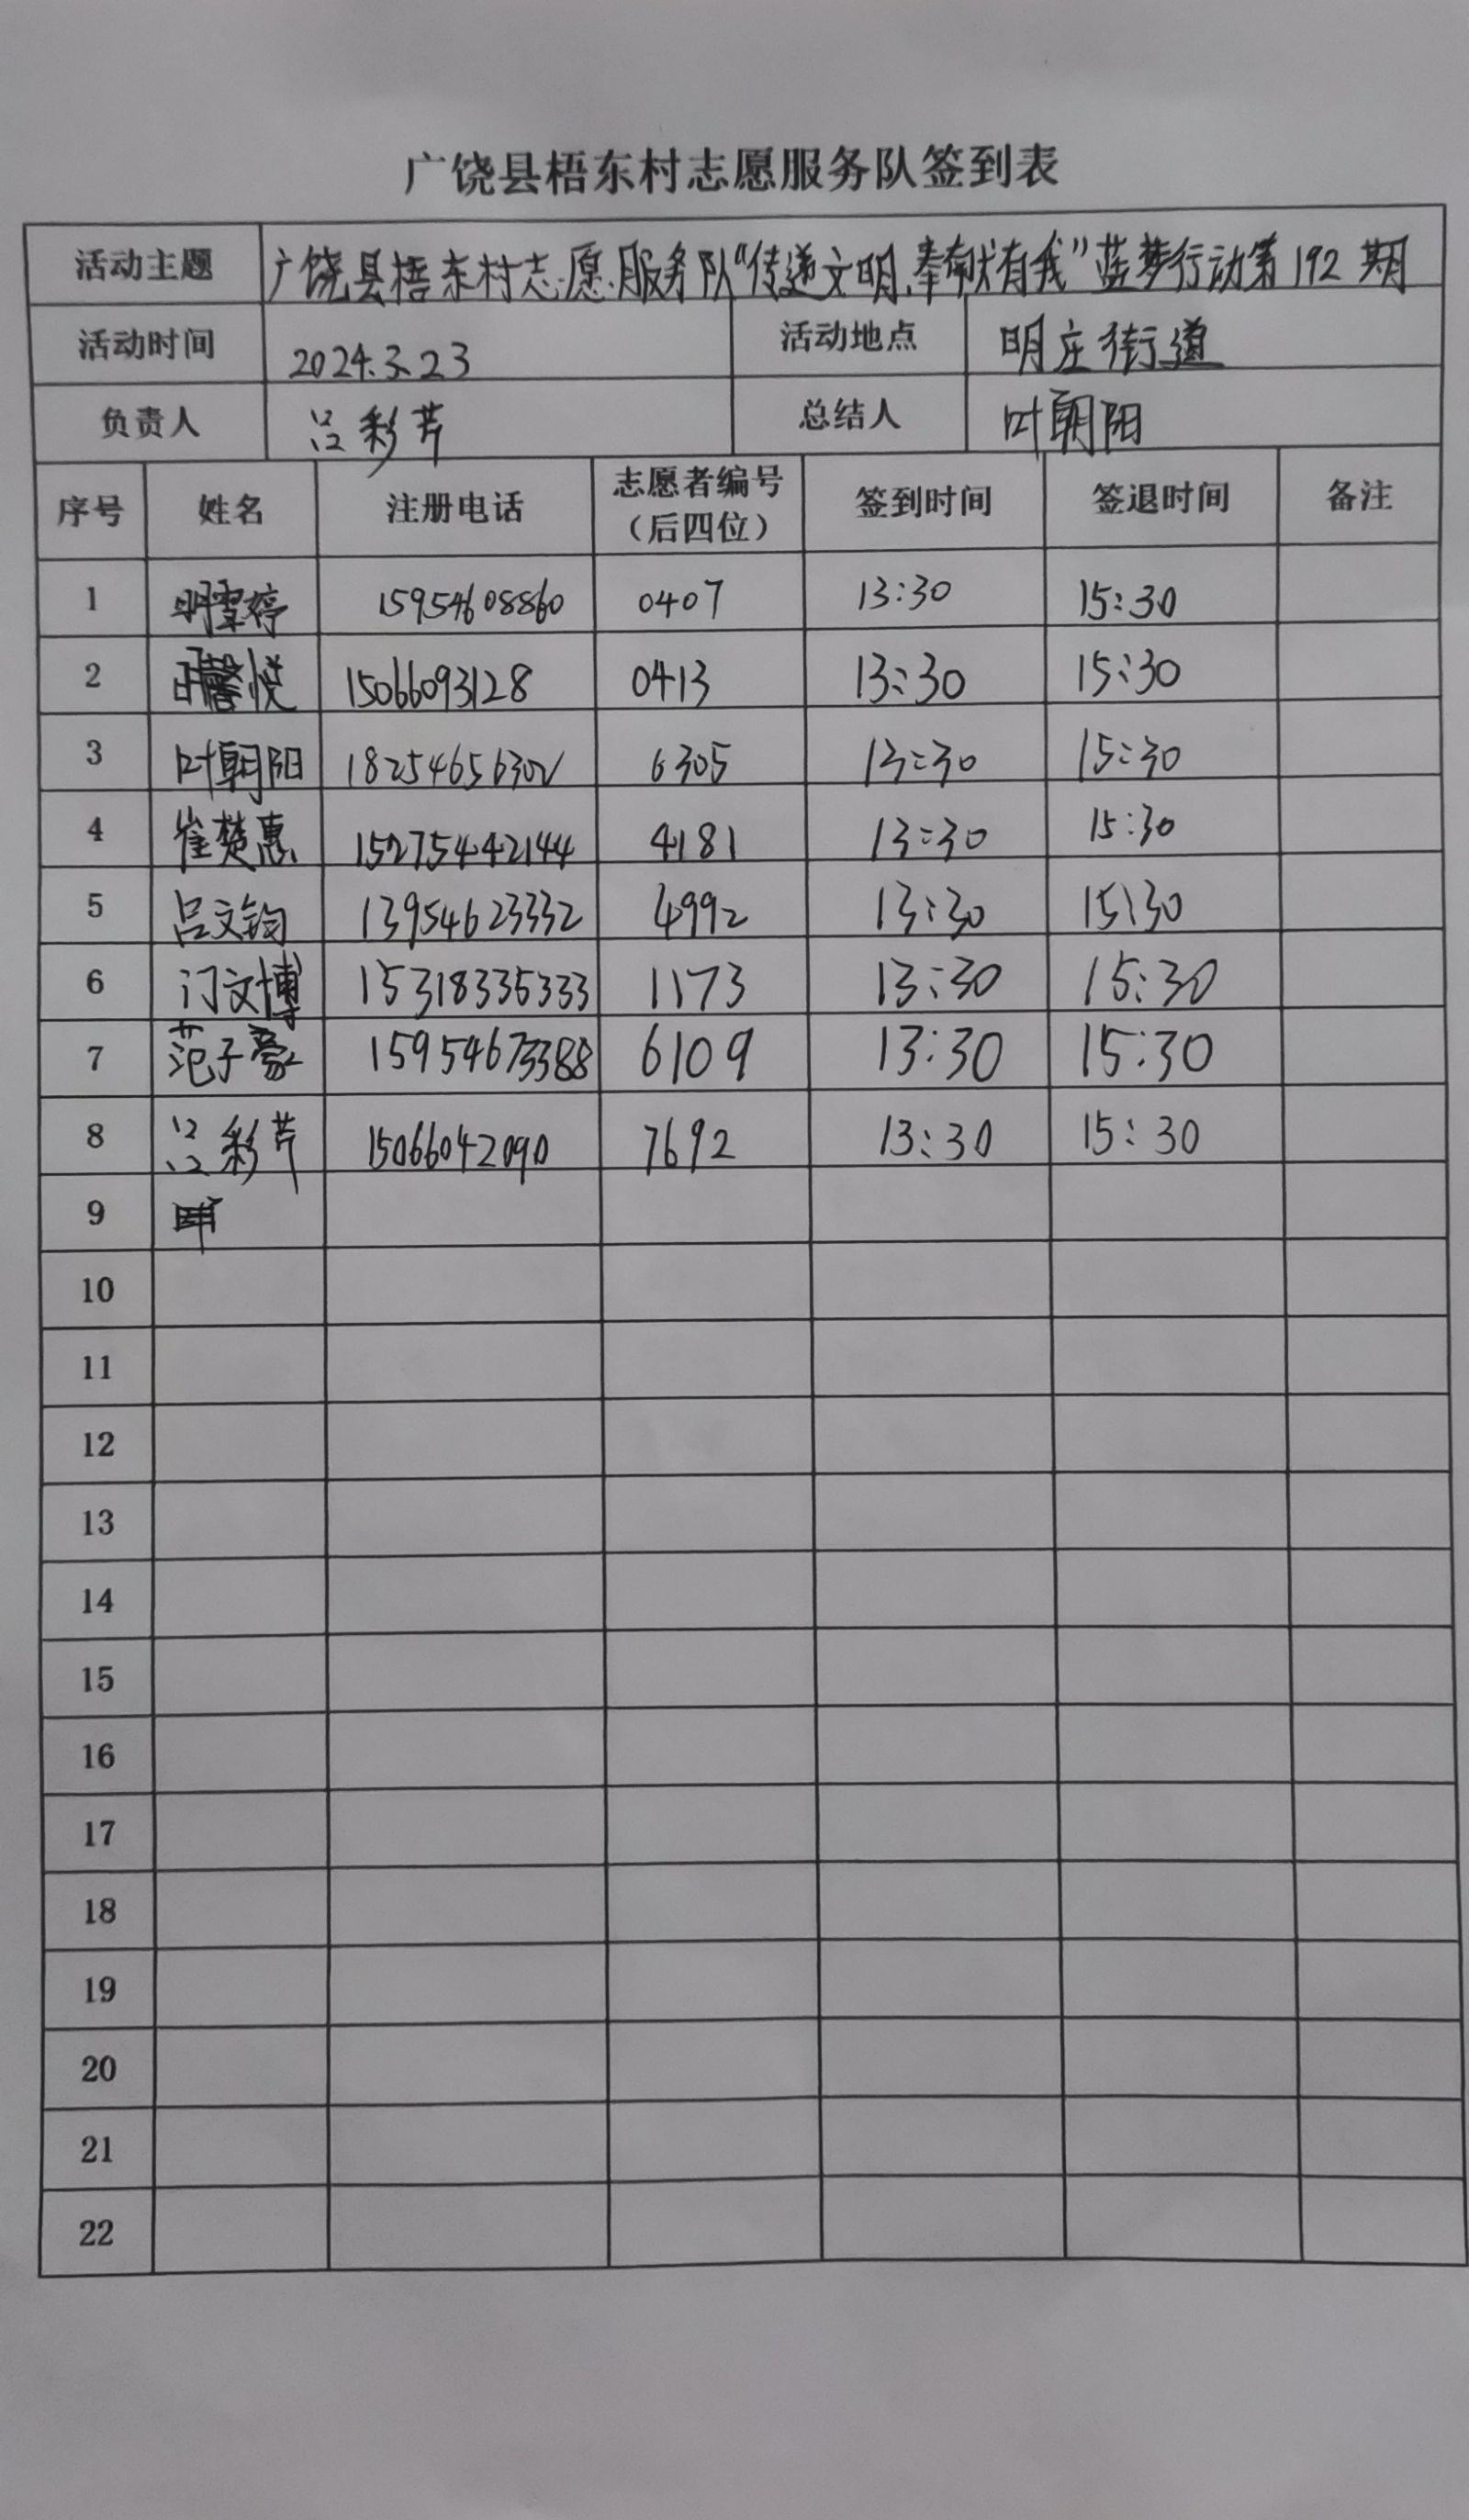 广饶县梧东村志愿服务队签到表
活动主题 广饶县梧东村志愿服务队“传递文明、奉献有我”蓝梦行动第192期
活动时间 2024.3.23 活动地点 明庄街道
负责人 吕彩芹 总结人 叶朝阳
序号 姓名 注册电话 志愿者编号（后四位） 签到时间 签退时间 备注
1 明雯婷 15954608860 0407 13:30 15:30
2 明馨悦 15066093128 0413 13:30 15:30
3 叶朝阳 18254656302 6305 13:30 15:30
4 崔楚惠 15275442144 4181 13:30 15:30
5 吕文钧 13954623332 4992 13:30 15:30
6 门文博 15318335333 1173 13:30 15:30
7 范子豪 15954673388 6109 13:30 15:30
8 吕彩芹 15066042090 7692 13:30 15:30
9
10
11
12
13
14
15
16
17
18
19
20
21
22